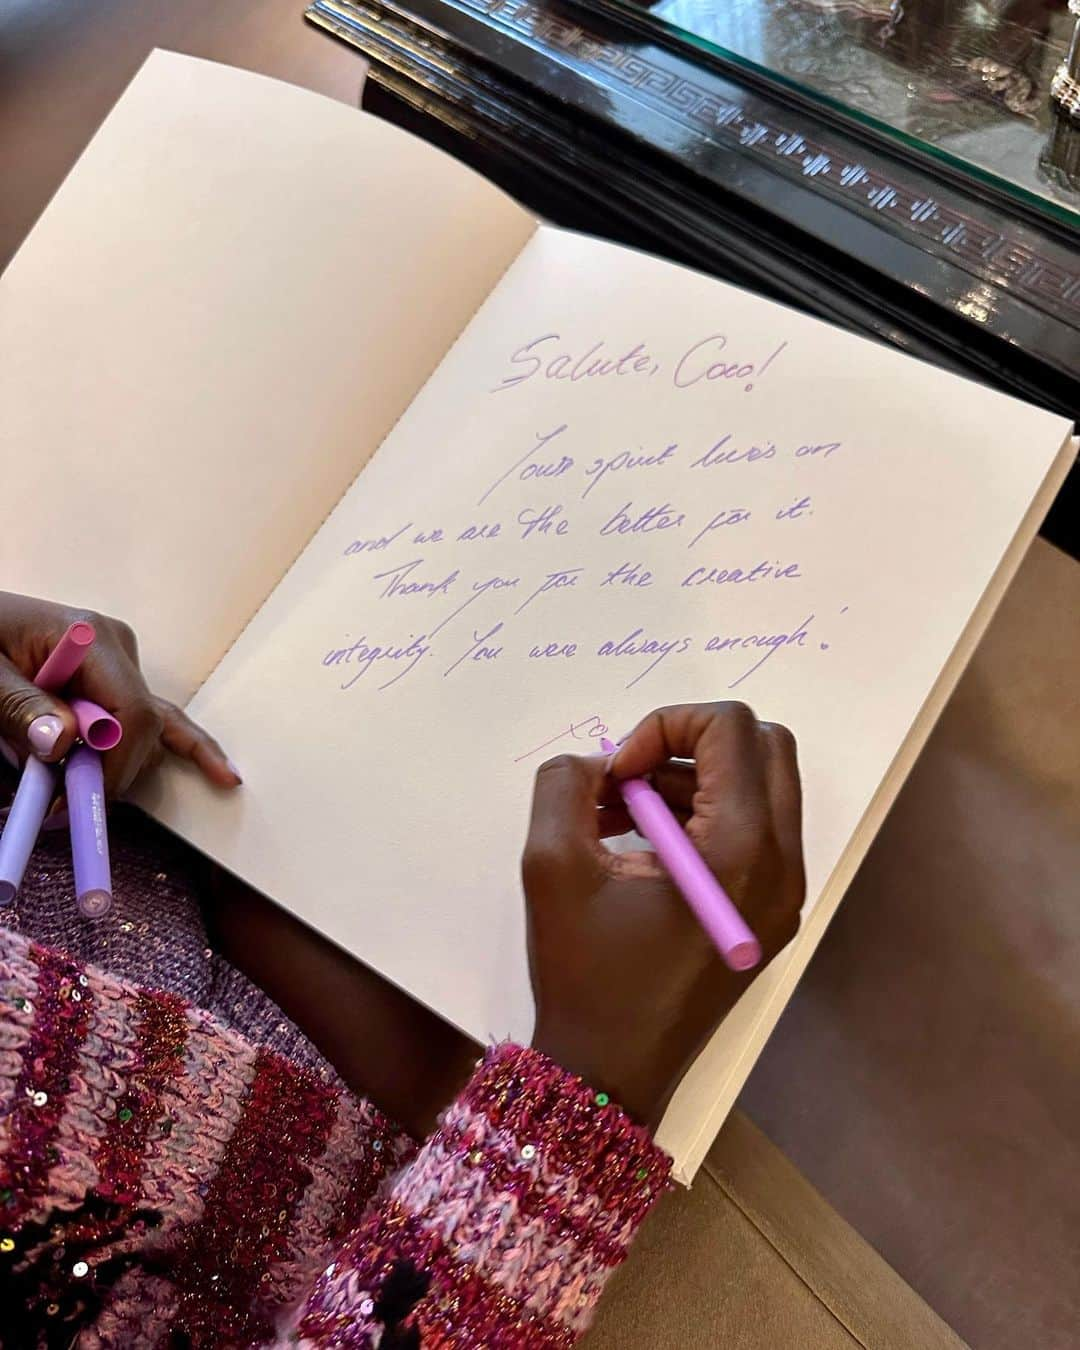 Salute, Coco!
Your spirit lives on
and we are the better for it.
Thank you for the creative
integrity. You were always enough!
xo